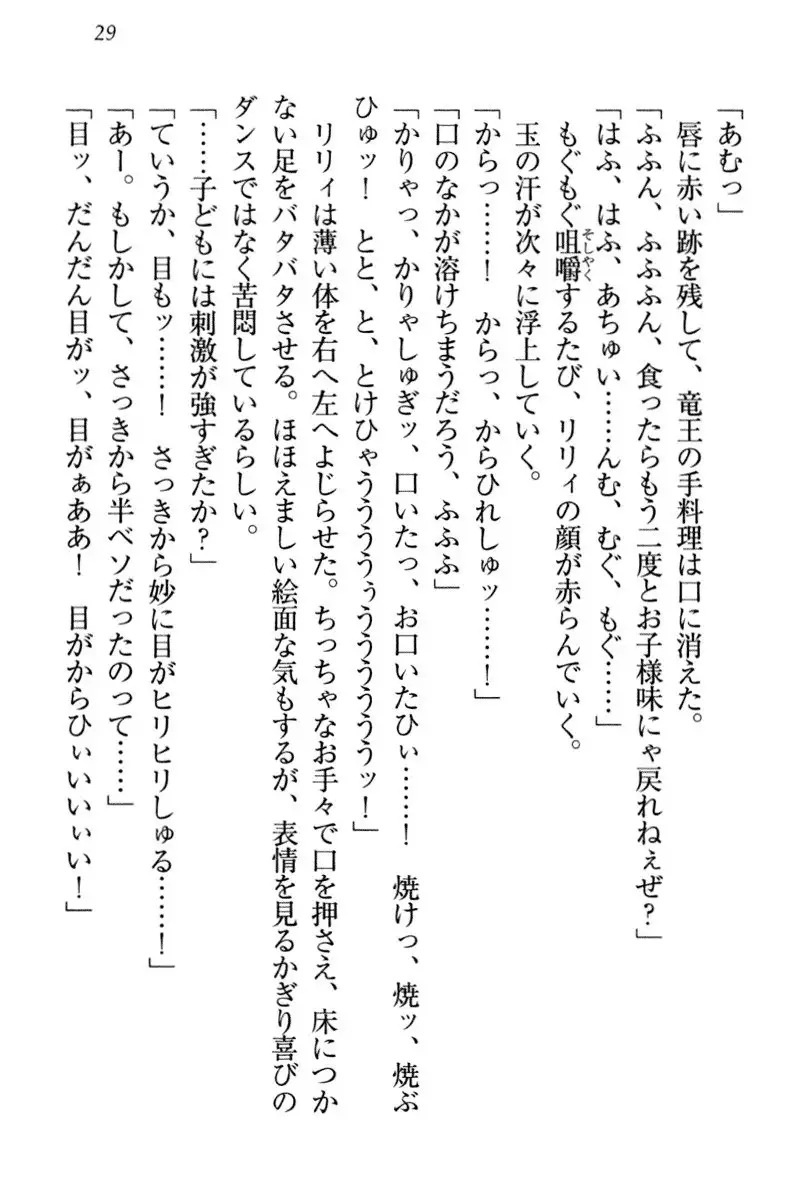 29
「あむっ」
唇に赤い跡を残して、竜王の手料理は口に消えた。
「ふふん、ふふふん、食ったらもう二度とお子様味にゃ戻れねぇぜ？」
「はふ、はふ、あちゅい……んむ、むぐ、もぐ……」
もぐもぐ咀嚼するたび、リリィの顔が赤らんでいく。
玉の汗が次々に浮上していく。
「からっ……！　からっ、からひれしゅッ……！」
「口のなかが溶けちまうだろう、ふふふ」
「かりゃっ、かりゃしゅぎッ、口いたっ、お口いたひぃ……！　焼けっ、焼ッ、焼ぶ
ひゅッ！　とと、と、とけひゃうううううぅううううううッ！」
リリィは薄い体を右へ左へよじらせた。ちっちゃなお手々で口を押さえ、床につか
ない足をバタバタさせる。ほほえましい絵面な気もするが、表情を見るかぎり喜びの
ダンスではなく苦悶しているらしい。
「……子どもには刺激が強すぎたか？」
「ていうか、目もッ……！　さっきから妙に目がヒリヒリしゅる……！」
「あー。もしかして、さっきから半ベソだったのって……」
「目ッ、だんだん目がッ、目がぁああ！　目がからひぃいいぃい！」